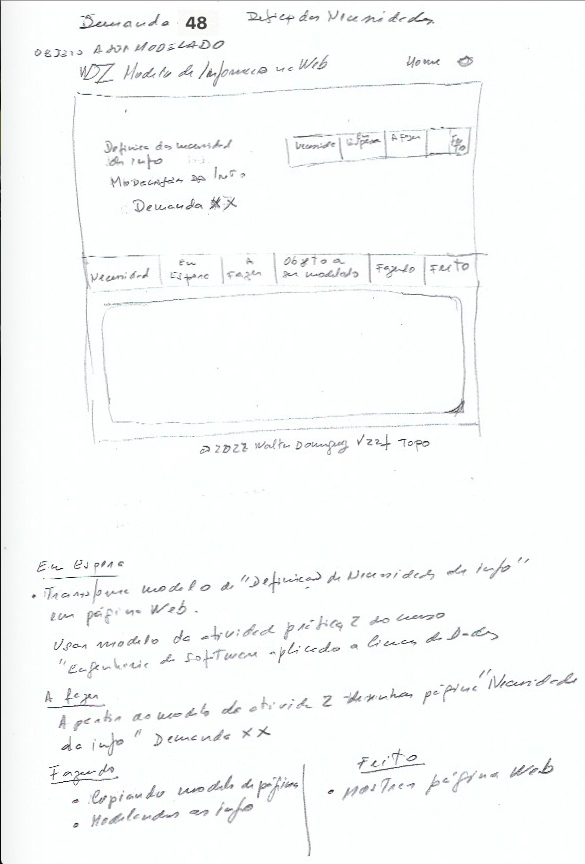 Demanda 48 Definição das Necessidades
OBJETO A SER MODELADO
WDI Modelo de Informação na Web Home
Definição das necessidad
de info
MODELAGEM DA INFO
Demanda XX
Necessidade Espera A Fazer Feito
Necessidad Em Espera A Fazer Objeto a ser modelado Fazendo Feito
@2022 Walter V22f TOPO
Em Espera
• Transforme modelo de "Definição de Necessidades de info"
em página Web.
Usar modelo da atividade prática 2 do curso
"Engenharia de Software aplicado a de Dados
A fazer
A partir do modelo da atividade 2 desenhar página "Necessidade
da info" Demanda XX
Fazendo
• Copiando modelo de página
• Modelando as info
Feito
• Mostrar página Web